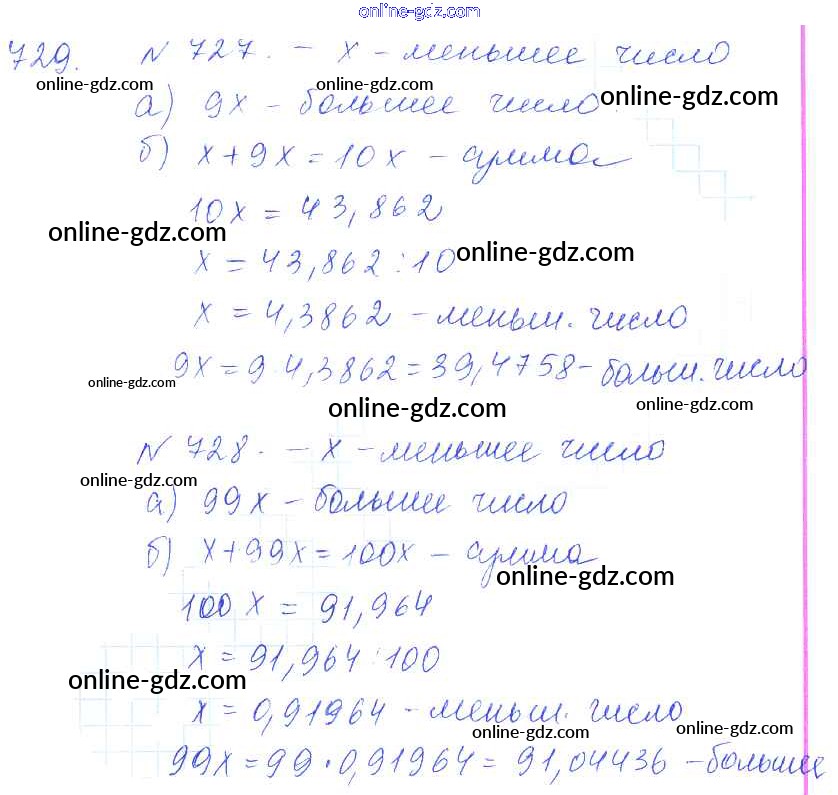 online-gdz.com
729. N 727. – x – меньшее число
online-gdz.com online-gdz.com online-gdz.com
а) 9x – большее число.
б) x + 9x = 10x – сумма
10x = 43,862
online-gdz.com
x = 43,862 : 10 online-gdz.com
x = 4,3862 – меньш. число
9x = 9·4,3862 = 39,4758 – больш. число
online-gdz.com online-gdz.com online-gdz.com
N 728. – x – меньшее число
online-gdz.com
а) 99x – большее число
б) x + 99x = 100x – сумма
online-gdz.com
100x = 91,964
x = 91,964 : 100
online-gdz.com
x = 0,91964 – меньш. число
online-gdz.com online-gdz.com
99x = 99 · 0,91964 = 91,04436 – большее